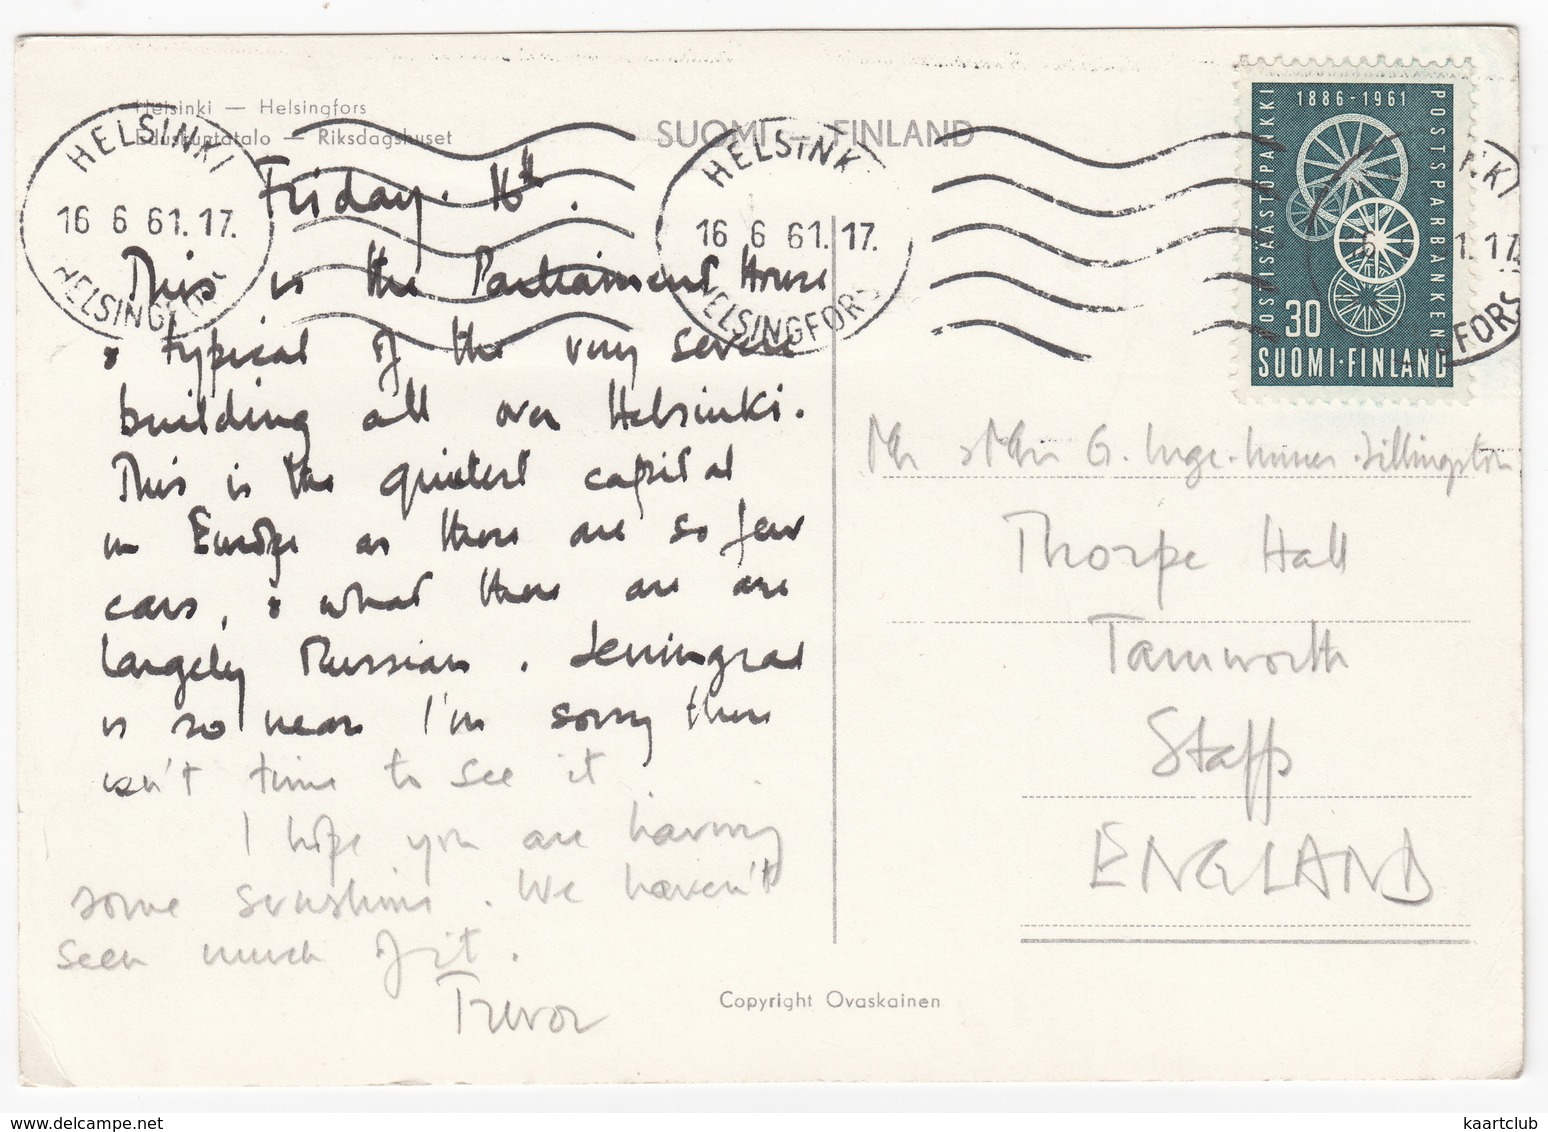 Helsinki — Helsingfors
Eduskuntatalo — Riksdagshuset
SUOMI — FINLAND
HELSINKI
16 6 61.17.
HELSINGFORS
HELSINKI
16 6 61.17.
HELSINGFORS
1886-1961
POSTISÄÄSTÖPANKKI
POSTSPARBANKEN
30
SUOMI·FINLAND
NKI
1.17
FORS
Friday. 16th.
This is the Parliament House
& typical of the very severe
building all over Helsinki.
This is the quietest capital
in Europe as there are so few
cars, & what there are are
largely Russian. Leningrad
is so near I'm sorry there
isn't time to see it
I hope you are having
some sunshine. We haven't
seen much of it.
Trevor
Mr & Mrs G. Inge-Innes-Lillingston
Thorpe Hall
Tamworth
Staffs
ENGLAND
Copyright Ovaskainen
www.delcampe.net
kaartclub